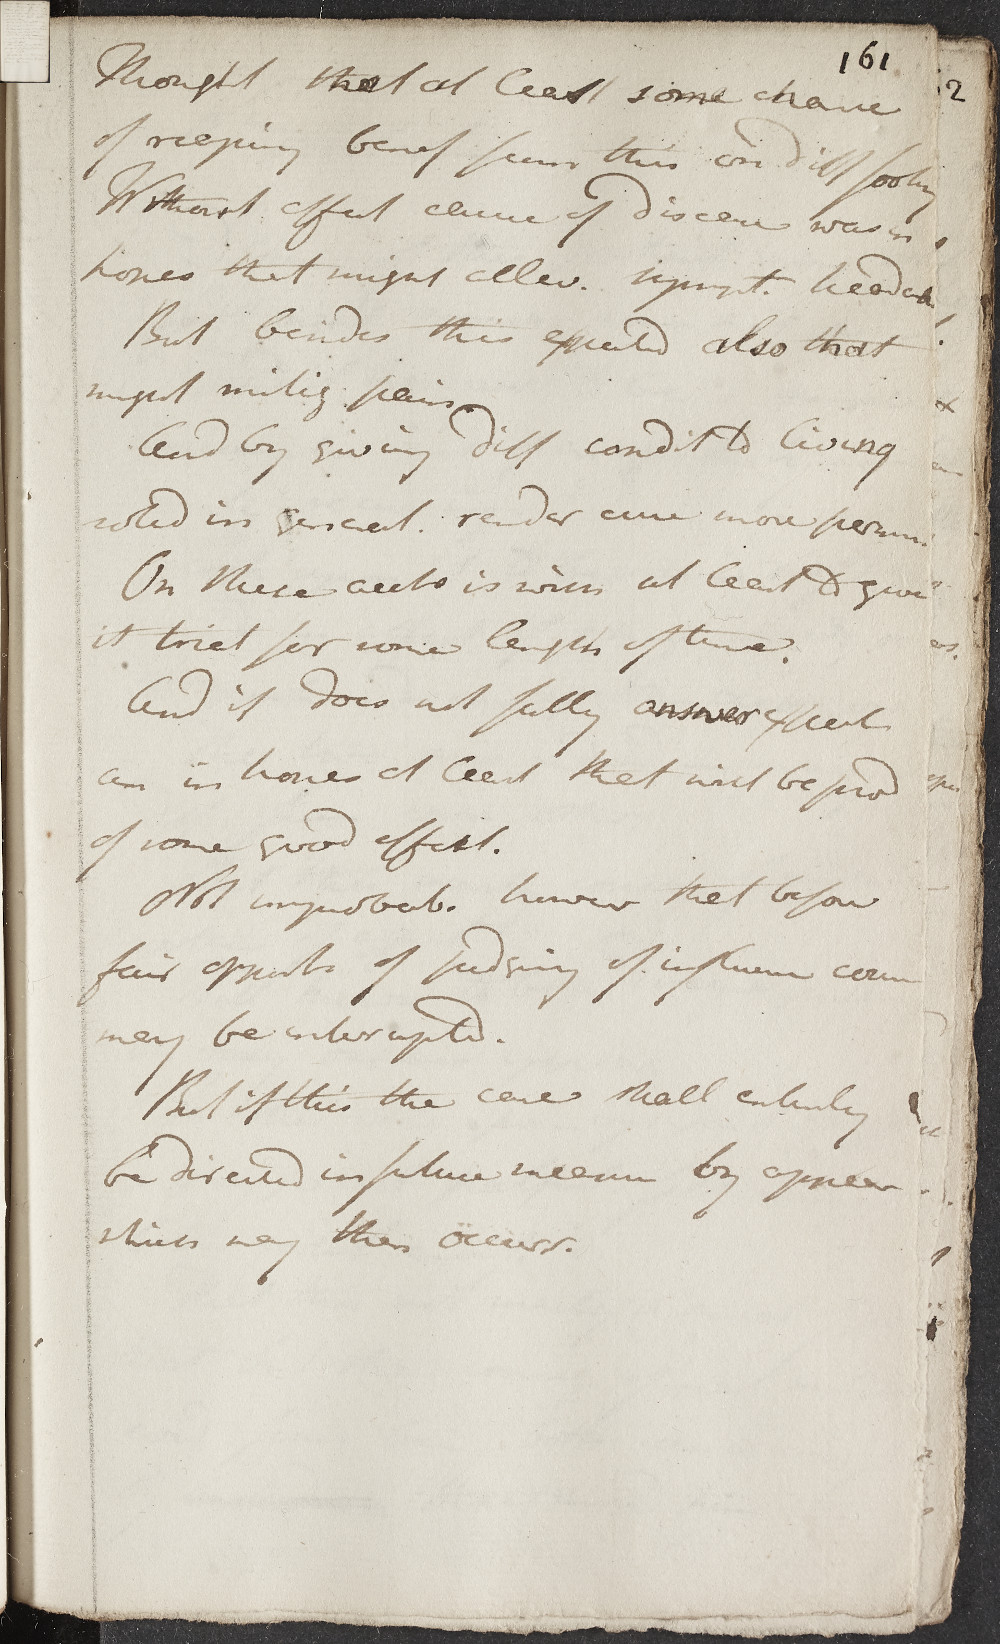 161
Thought that at least some chance
of reaping benef from this on diff footing
Without affect cause of disease was in
hopes that might allev. sympt. headach
But besides this expected also that
might mitig pain.
And by giving diff condit to living
solid in general. render cure more perman.
On these accts is wish at least to give
it trial for some length of time.
And if does not fully answer expect
am in hopes at least that will be prod
of some good effect.
Not improbab. however that before
fair opport of judging of influence course
may be interrupted.
But if this the case shall entirely
be directed in future measure by appear
which may then occurr.